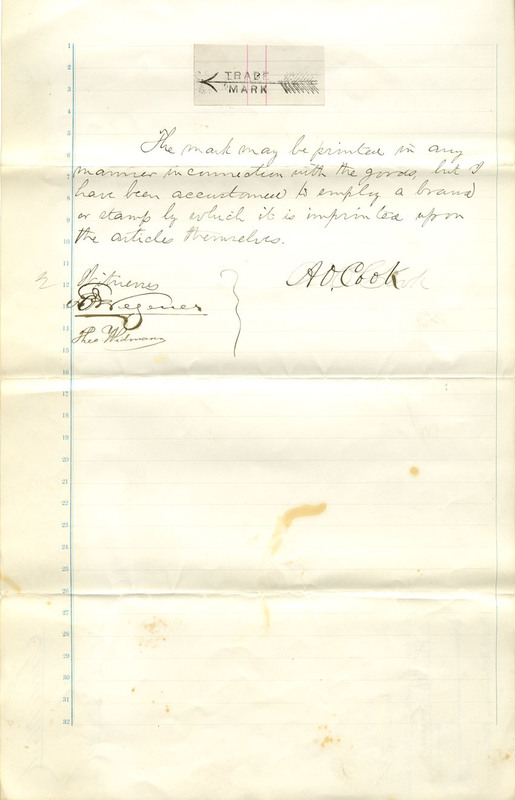 TRADE
MARK
1
2
3
4
5
6
7
8
9
10
11
12
13
14
15
16
17
18
19
20
21
22
23
24
25
26
27
28
29
30
31
32
The mark may be printed in any
manner in connection with the goods, but I
have been accustomed to employ a brand
or stamp by which it is imprinted upon
the articles themselves.
Witnesses
A O. Cook
Wegener
Theo Widmann